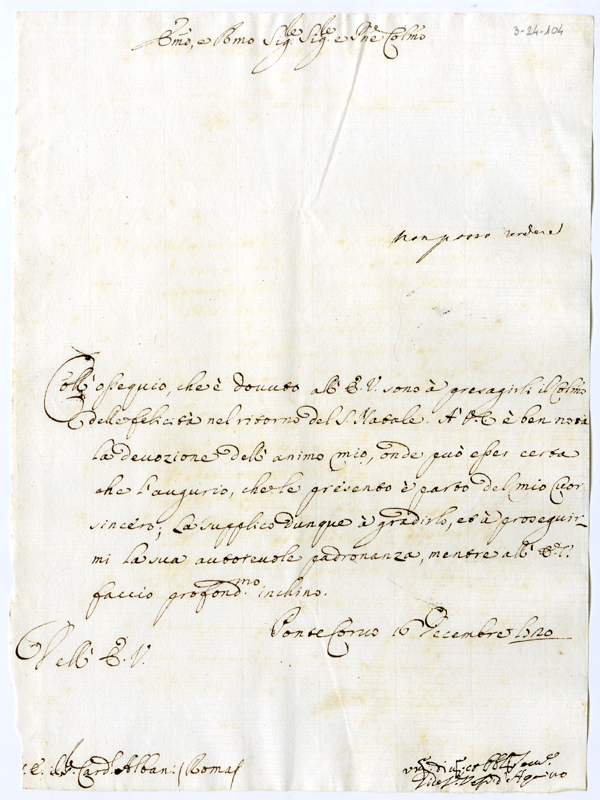 3-24-104
Emo, e Rmo Sig.re Sig.re e Pne Colmo
Coll' ossequio, che è dovuto all' E.V. sono à presagirli il Colmo
delle felicità nel ritorno del S. Natale. A V.E. è ben nota
la devozione dell' animo mio, onde può esser certa
che l'augurio, che le presento è parto del mio Cuor
sincero; La supplico dunque à gradirlo, et à proseguir-
mi la sua autorevole padronanza, mentre all' E.V.
faccio profond.mo inchino.
Ponte Corvo 16 Decembre 1720
Dell' E.V.
Card. Albani / Roma /